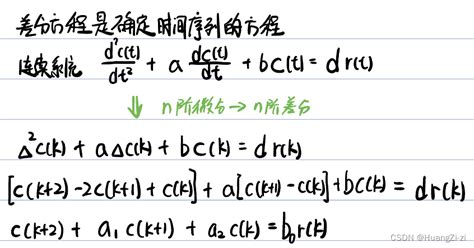 差分方程是确定时间序列的方程
连续系统 d²c(t)/dt² + a dc(t)/dt + bc(t) = dr(t)
⇓ n阶微分→n阶差分
Δ²c(k) + aΔc(k) + bc(k) = dr(k)
[c(k+2)-2c(k+1)+c(k)] + a[c(k+1)-c(k)] + bc(k) = dr(k)
c(k+2) + a₁c(k+1) + a₂c(k) = b₀r(k)
CSDN @HuangZi-zi